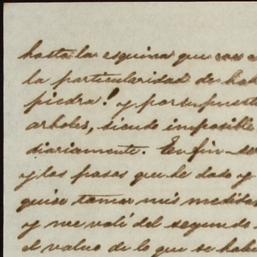 hasta la esquina que
la particularidad de
piedra! y por supuest
arboles, siendo imposible
diariamente. En fin
y los pasos que he dado y
quise tomar mis medida
y me valí del segundo
el valor de lo que se hab